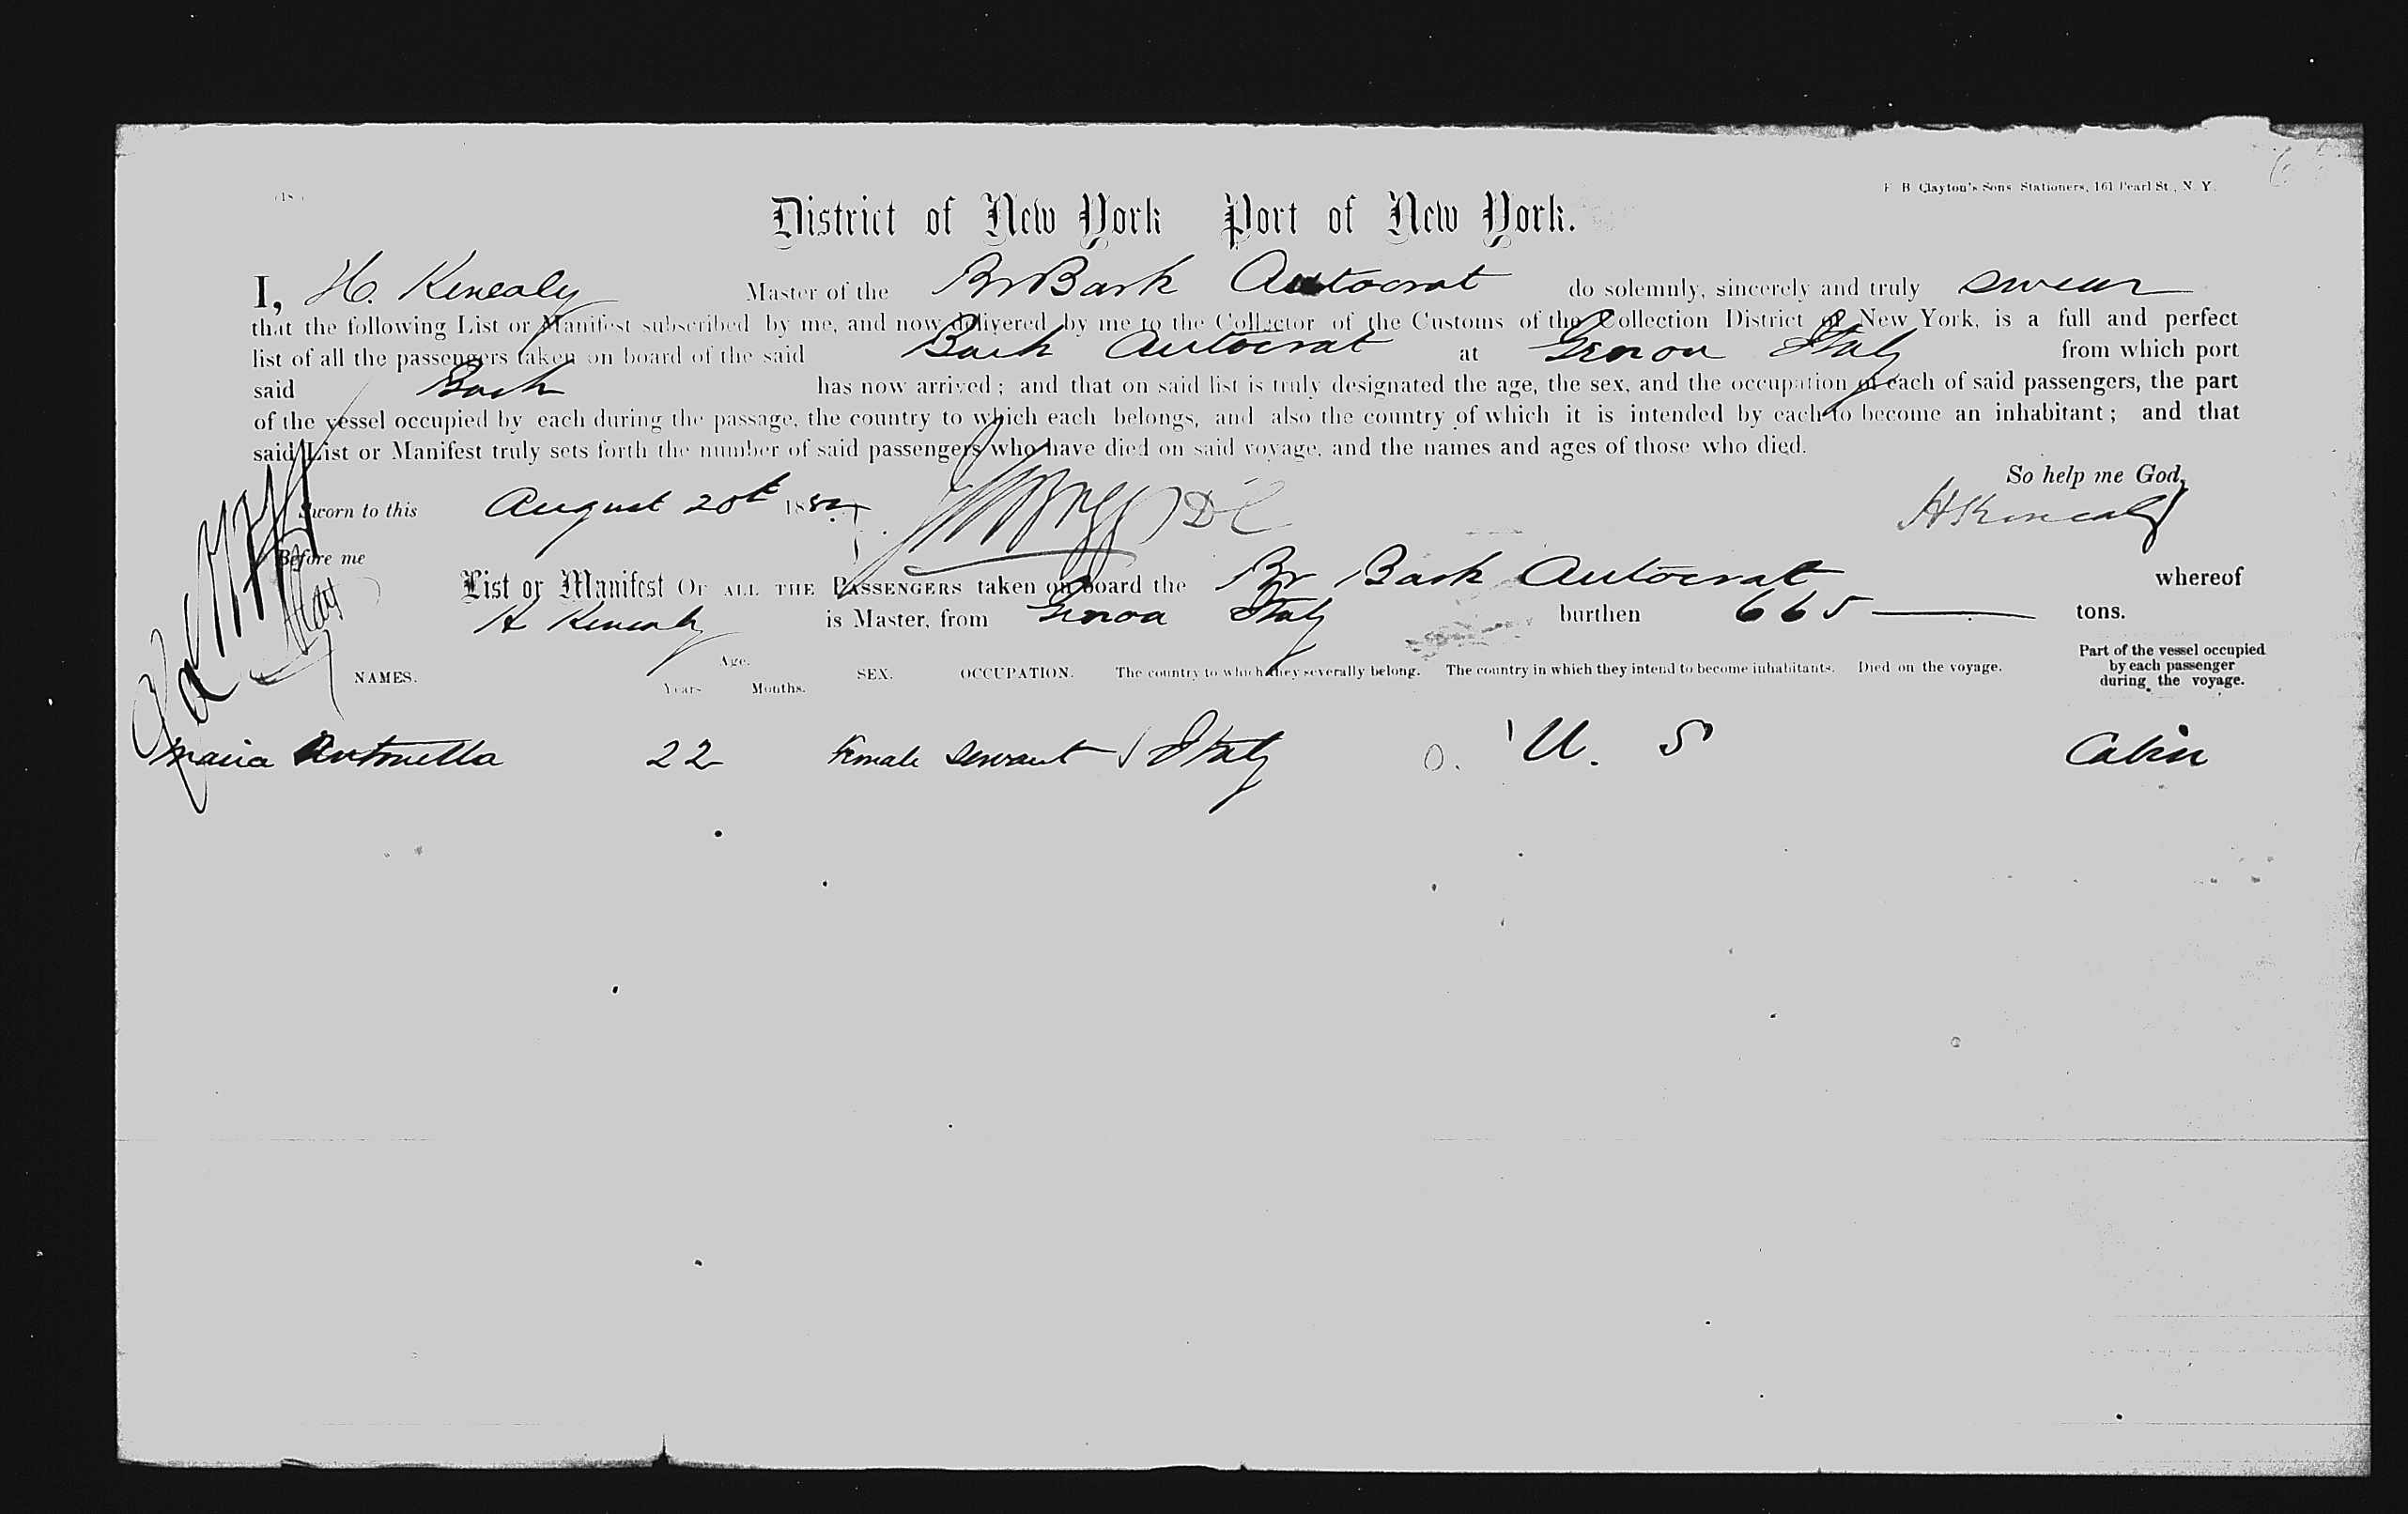 F. B. Clayton's Sons Stationers, 161 Pearl St., N. Y.
District of New York Port of New York.
I, H. Kenealy Master of the Br Bark Autocrat do solemnly, sincerely and truly swear
that the following List or Manifest subscribed by me, and now delivered by me to the Collector of the Customs of the Collection District of New York, is a full and perfect
list of all the passengers taken on board of the said Bark Autocrat at Genoa Italy from which port
said Bark has now arrived; and that on said list is truly designated the age, the sex, and the occupation of each of said passengers, the part
of the vessel occupied by each during the passage, the country to which each belongs, and also the country of which it is intended by each to become an inhabitant; and that
said List or Manifest truly sets forth the number of said passengers who have died on said voyage, and the names and ages of those who died.
So help me God,
Sworn to this August 20t 188 H Kenealy
Before me
List or Manifest OF ALL THE PASSENGERS taken on board the Br Bark Autocrat whereof
H Kenealy is Master, from Genoa Italy burthen 665 tons.
NAMES. Age. Years Months. SEX. OCCUPATION. The country to which they severally belong. The country in which they intend to become inhabitants. Died on the voyage. Part of the vessel occupied by each passenger during the voyage.
Maria Antonella 22 Female Servant Italy U. S Cabin